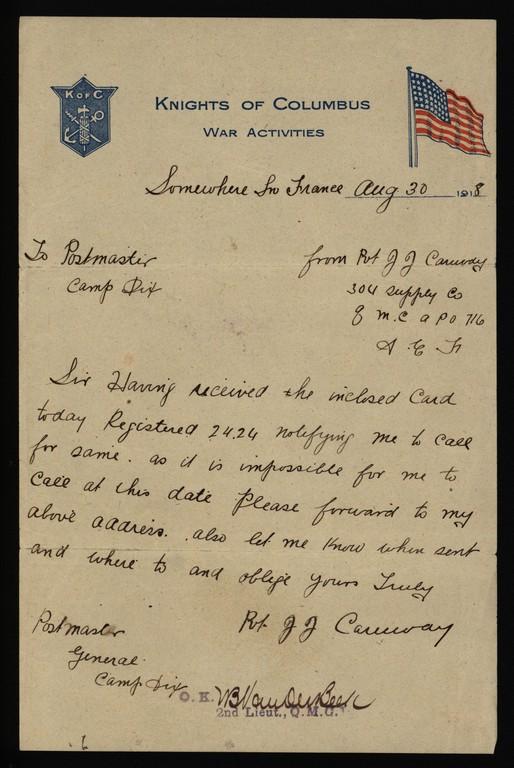 K of C
KNIGHTS OF COLUMBUS
WAR ACTIVITIES
Somewhere In France Aug 30 1918
To Postmaster
Camp Dix
from Pvt J J
304 Supply Co
Q M.C A P O 716
A E F
Sir Having received the inclosed Card
today Registered 2424 notifying me to call
for same. as it is impossible for me to
call at this date Please forward to my
above address. also let me know when sent
and where to and oblige Yours Truly
Pvt J J
Postmaster
General
Camp Dix
O.K.
2nd Lieut., Q.M.C.